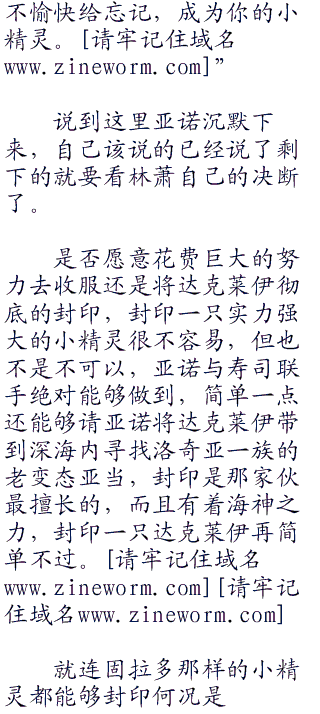 不愉快给忘记，成为你的小
精灵。[请牢记住域名
www.zineworm.com]”
说到这里亚诺沉默下
来，自己该说的已经说了剩
下的就要看林萧自己的决断
了。
是否愿意花费巨大的努
力去收服还是将达克莱伊彻
底的封印，封印一只实力强
大的小精灵很不容易，但也
不是不可以，亚诺与寿司联
手绝对能够做到，简单一点
还能够请亚诺将达克莱伊带
到深海内寻找洛奇亚一族的
老变态亚当，封印是那家伙
最擅长的，而且有着海神之
力，封印一只达克莱伊再简
单不过。[请牢记住域名
www.zineworm.com][请牢记
住域名www.zineworm.com]
就连固拉多那样的小精
灵都能够封印何况是